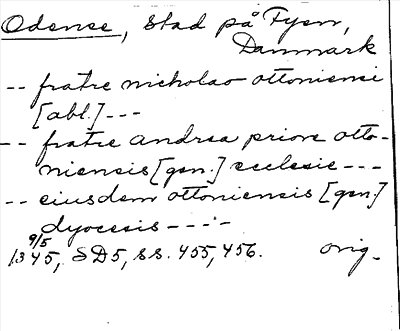 Odense, Stad på Fyen,
Danmark
-- fratre nicholao ottoniensi
[abl.] ---
-- fratre andrea priore otto-
niensis [gen.] ecclesie ---
-- eiusdem ottoniensis [gen.]
dyocesis ----
9/5
1345, SD5, ss. 455, 456. orig.